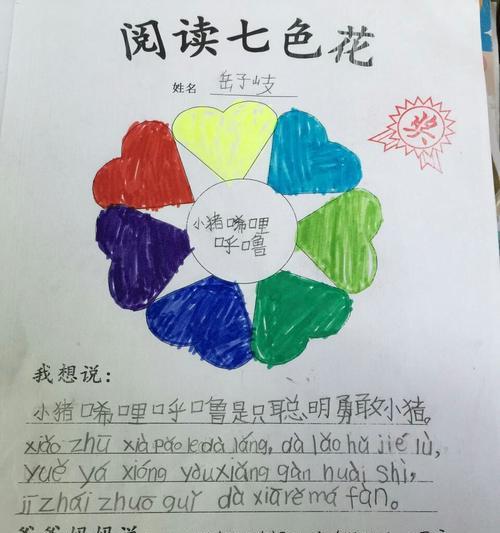 阅读七色花
姓名 岳子岐
奖
小猪唏哩
呼噜
我想说:
小猪唏哩呼噜是只聪明勇敢小猪。
xiǎo zhū xià pǎo le dà láng, dà lǎo hǔ jié lù,
yuě yá xióng yòu xiǎng gàn huài shì,
jī zhái zhuo guǐ dà xiā rě má fàn。
爷爷妈妈说